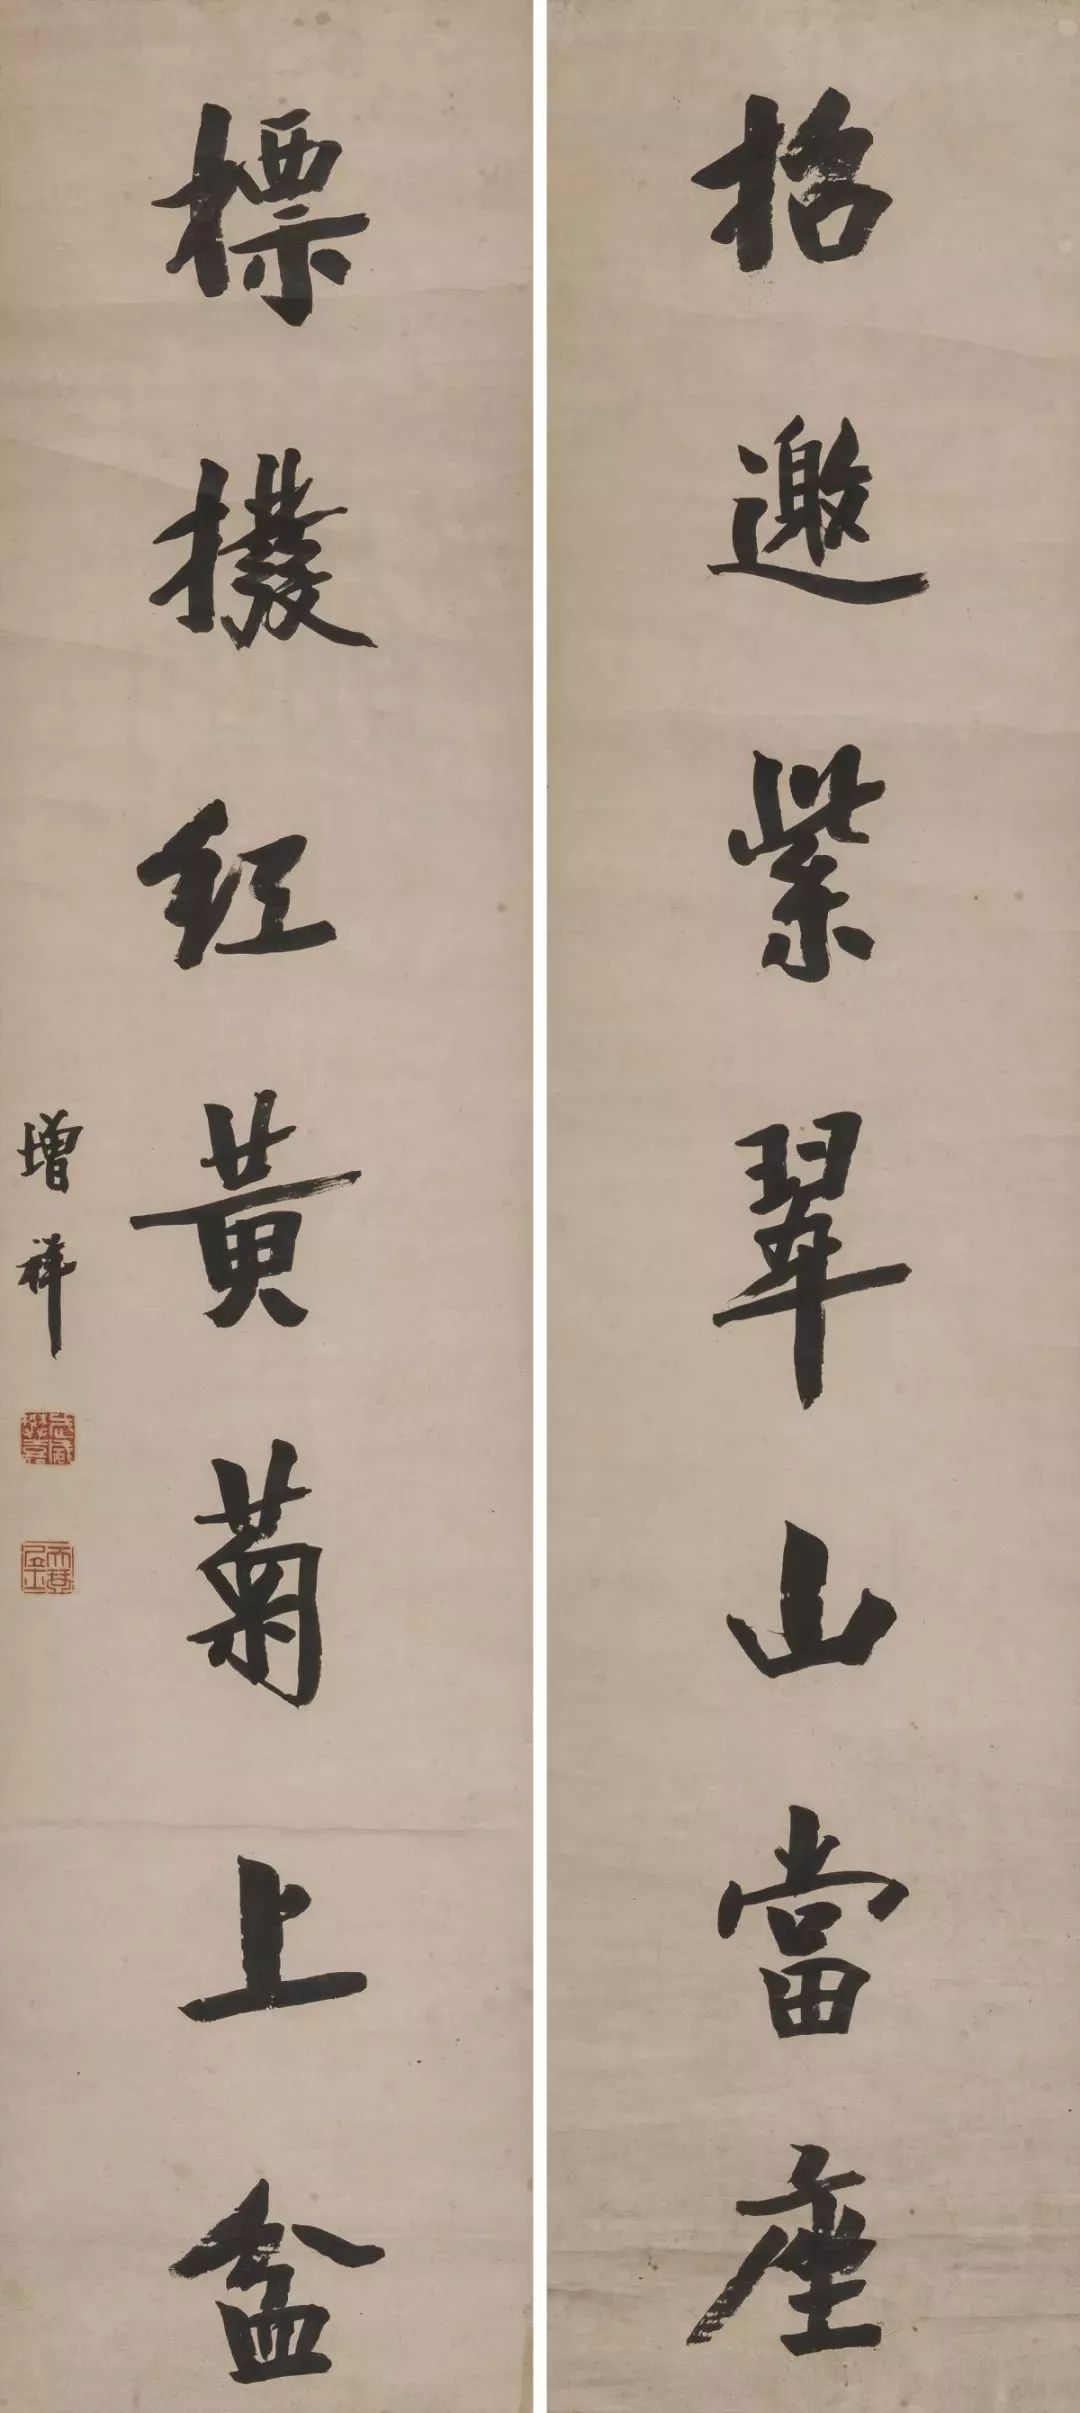 招邀紫翠山當座
標撥紅黃菊上盆
增祥